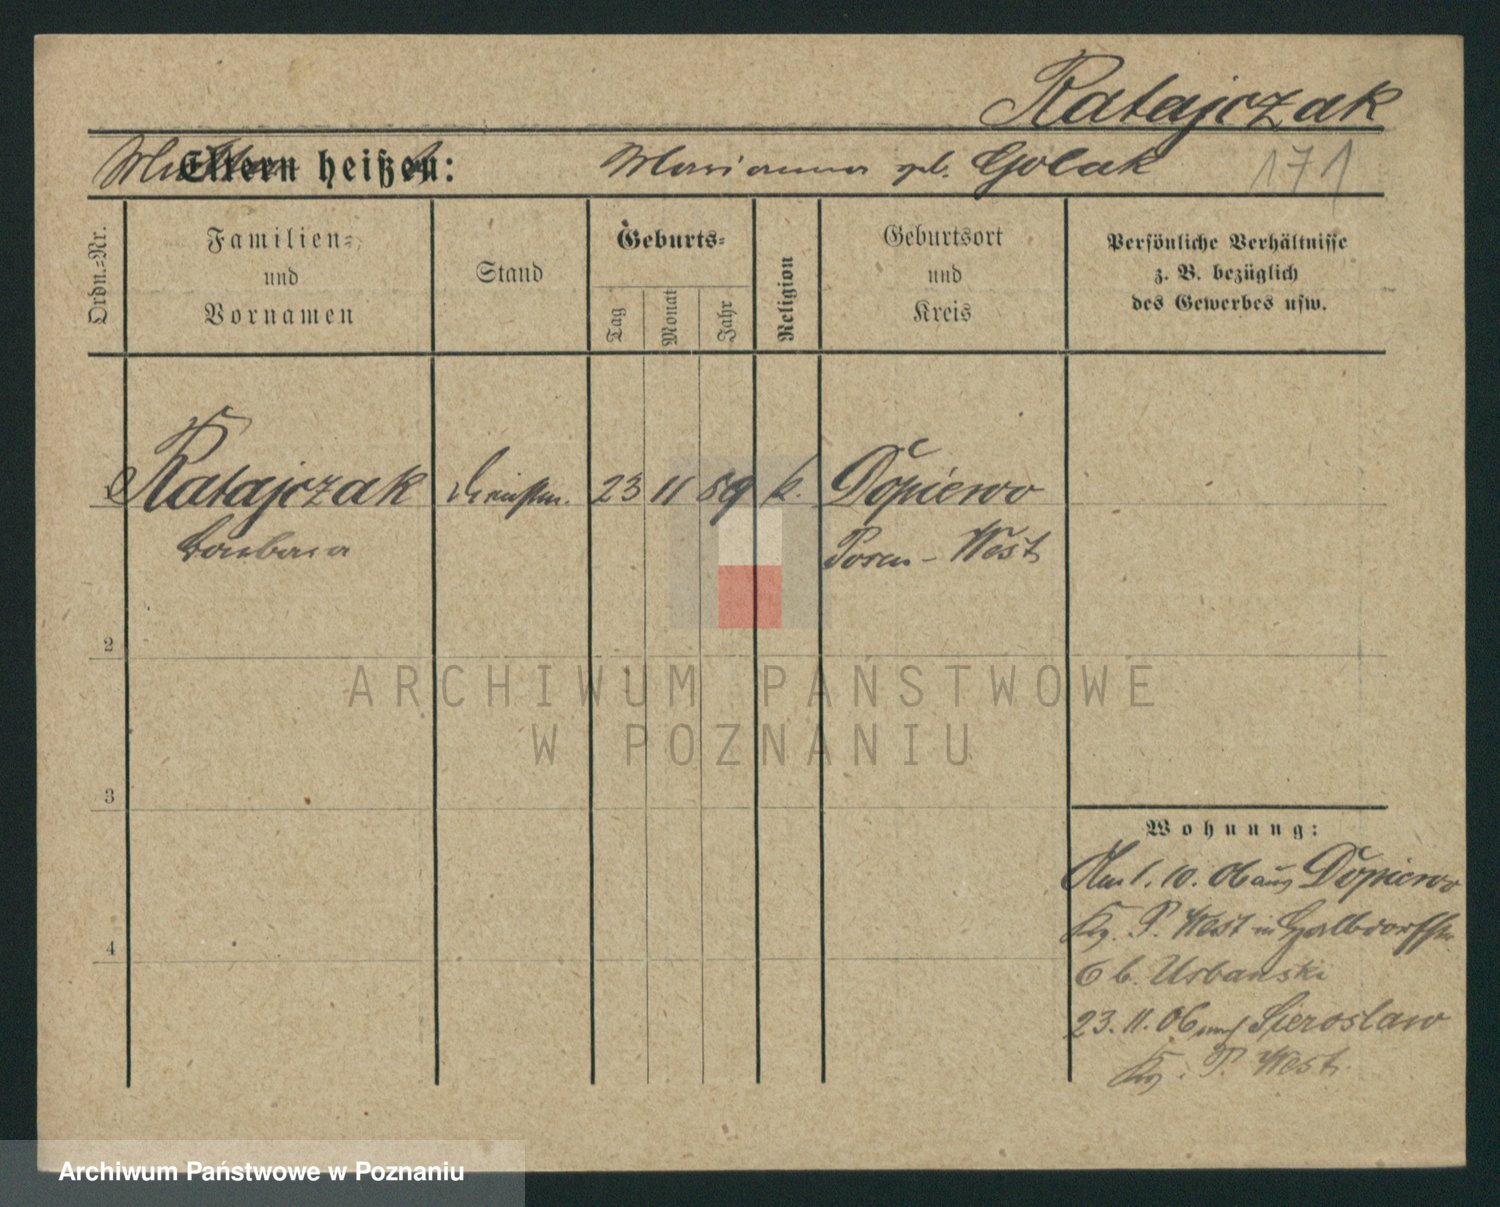 Ratajczak
Mutter
Eltern heißen:
Marianna geb. Golak
171
Ordn.-Nr.
Familien-
und
Vornamen
Stand
Geburts-
Tag
Monat
Jahr
Religion
Geburtsort
und
Kreis
Persönliche Verhältnisse
z. B. bezüglich
des Gewerbes usw.
Ratajczak
Barbara
Dienstm.
23
11
89
k.
Dopiewo
Posen-West
2
3
4
Wohnung:
Am 1. 10. 06 aus Dopiewo
Krs. P. West in Halbdorfstr.
6 b. Urbanski
23. 11. 06 nach Sieroslaw
Krs. P. West.
ARCHIWUM PAŃSTWOWE
W POZNANIU
Archiwum Państwowe w Poznaniu